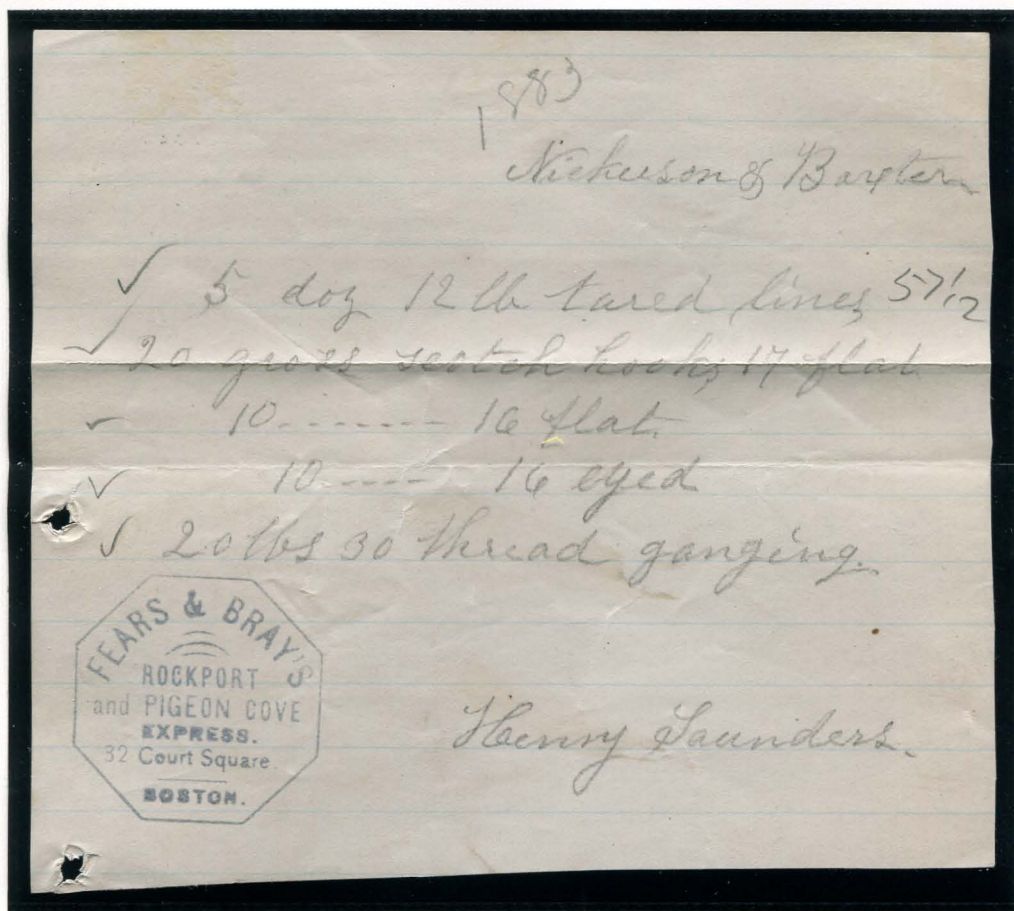 1883
Nickerson & Baxter
✓ 5 doz 12 lb tared lines 57 1/2
✓ 20 gross scotch hooks 17 flat
✓ 10 - - - - - - - 16 flat.
✓ 10 - - - - - 16 eyed
✓ 20 lbs 30 thread ganging.
FEARS & BRAY'S
ROCKPORT
and PIGEON COVE
EXPRESS.
32 Court Square
BOSTON.
Henry Saunders.